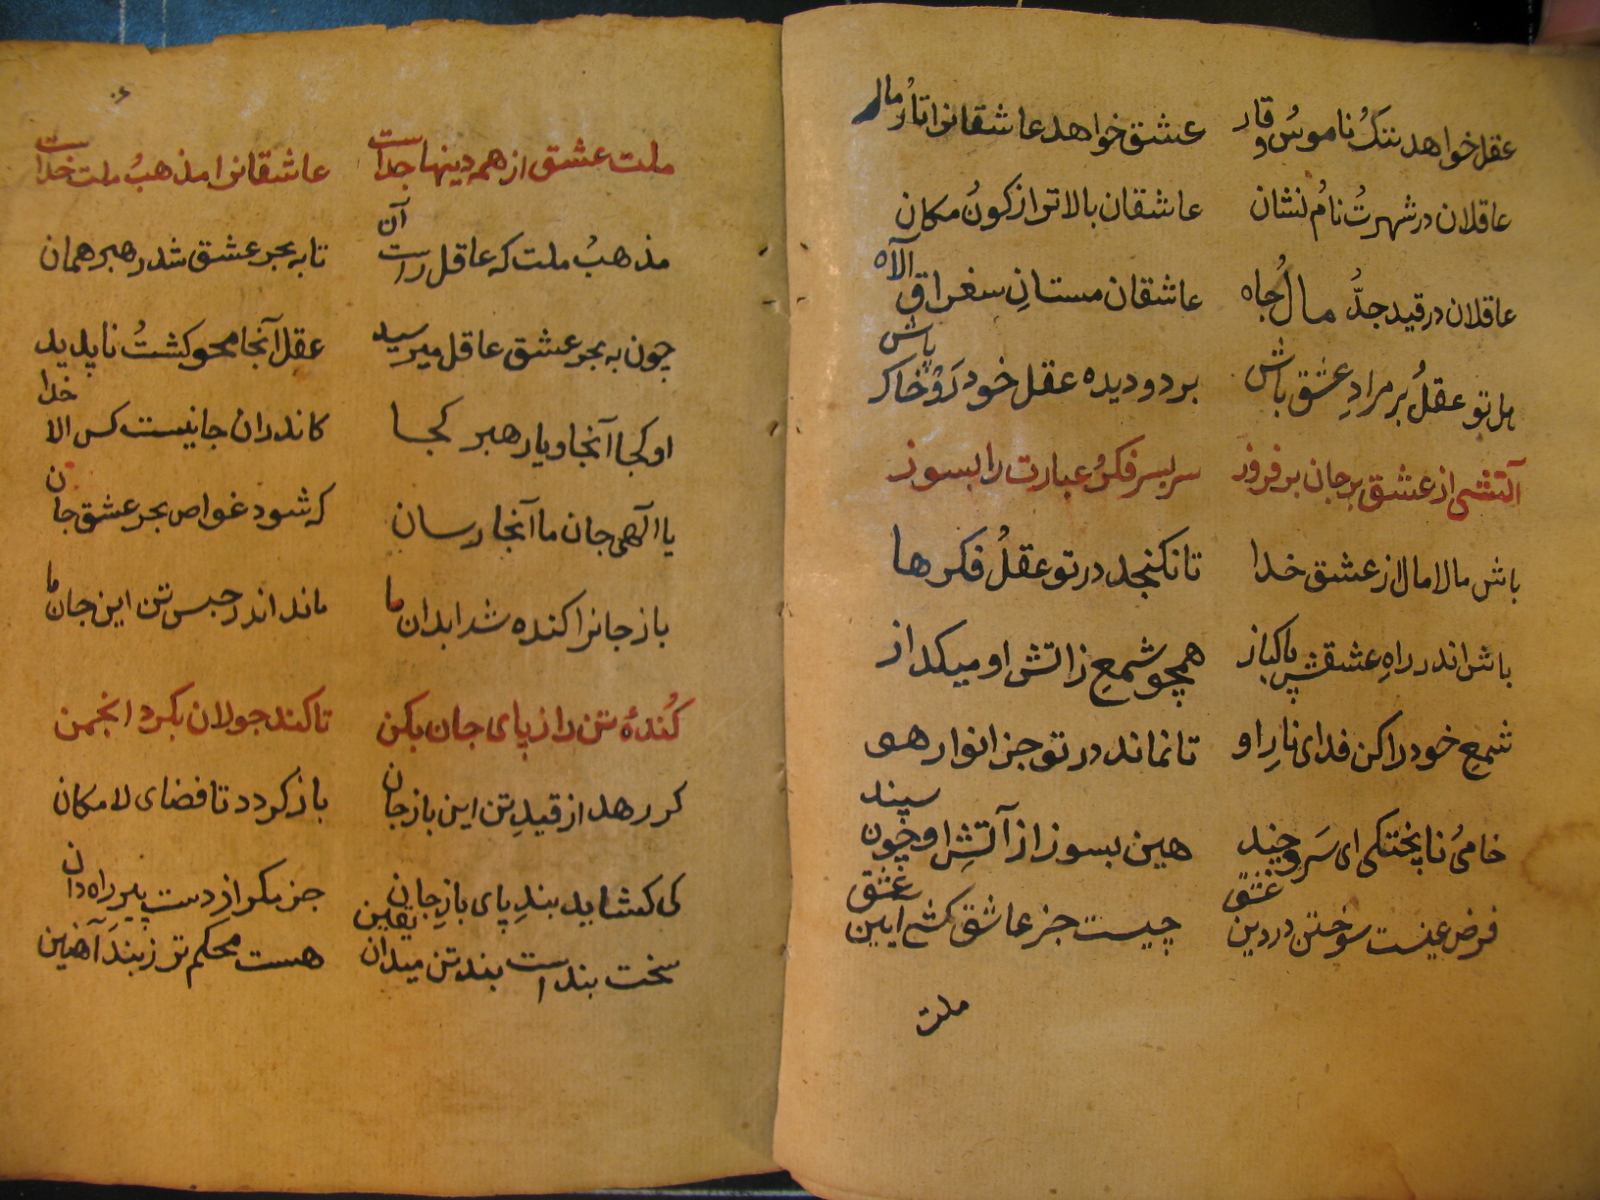 عقل خواهد ننکُ ناموسُ وقار عشق خواهد عاشقانرا تارُمار
عاقلان در شهرتُ نامُ نشان عاشقان بالاتر از کونُ مکان
عاقلان در قید جدُّ مالُ جاه عاشقان مستانِ سغراق الآه
هل تو عقلُ بر مرادِ عشق باش بر دو دیده عقل خود رَوْ خاک پاش
آتشی از عشق بر جان بر فروز سر بسر فکرُ عبارت را بسوز
باش مالامال از عشق خدا تا نکنجد در تو عقلُ فکرها
باش اندر راهِ عشقش پاکباز همچو شمعِ زاتش او میکداز
شمعِ خود را کن فدای نارِ او تا نماند در تو جز انوار هو
خامیُ ناپختکی ای سَرو چند هین بسوز از آتشِ او چون سپند
فرض عینست سوختن در دین عشق چیست جز عاشق کشی ایین عشق
ملت
ملت عشق از همه دینها جداست عاشقانرا مذهبُ ملت خداست
مذهبُ ملت که عاقل راست آن تا به بحر عشق شد رهبر همان
چون به بحر عشق عاقل میرسید عقل آنجا محو کشتُ ناپدید
او کجا آنجا و یار رهبر کجا کاندران جا نیست کس الا خدا
یا الهی جان ما آنجا رسان که شود غواص بحر عشق جان
باز جانرا کنده شد ابدان ما ماند اندر حبس تن این جان ما
کُندهٔ تن را ز پای جان بکن تا کند جولان بکرد انجمن
کر رهد از قیدِ تن این باز جان باز کردد تا فضای لامکان
کی کشاید بندِ پای بازِ جان جز مکر از دست پیر راه دان
سخت بند است بند تن میدان یقین هست محکم تر ز بندَ آهنین